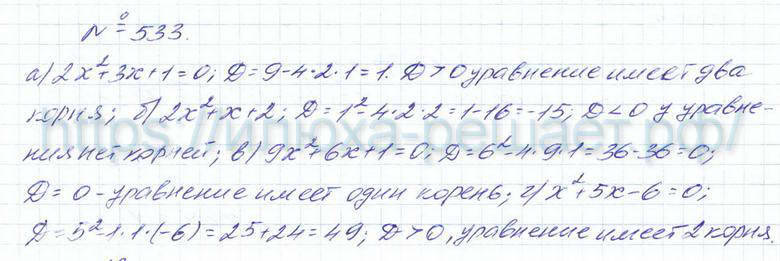 № 533.
а) 2x²+3x+1=0; Д=9-4·2·1=1. Д>0 уравнение имеет два
корня; б) 2x²+x+2; Д=1²-4·2·2=1-16=-15; Д<0 у уравне-
ния нет корней; в) 9x²+6x+1=0; Д=6²-4·9·1=36-36=0;
Д=0-уравнение имеет один корень; г) x²+5x-6=0;
Д=5²-1·1·(-6)=25+24=49; Д>0, уравнение имеет 2 корня.
https://илюха-решает.рф/